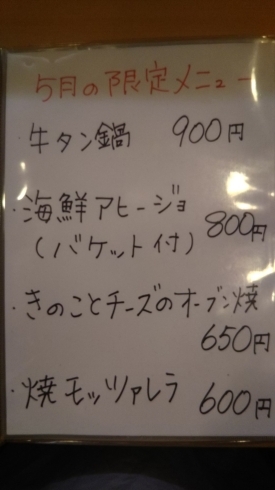 5月の限定メニュー
・牛タン鍋 900円
・海鮮アヒージョ 800円
(バケット付)
・きのことチーズのオーブン焼
650円
・焼モッツァレラ 600円